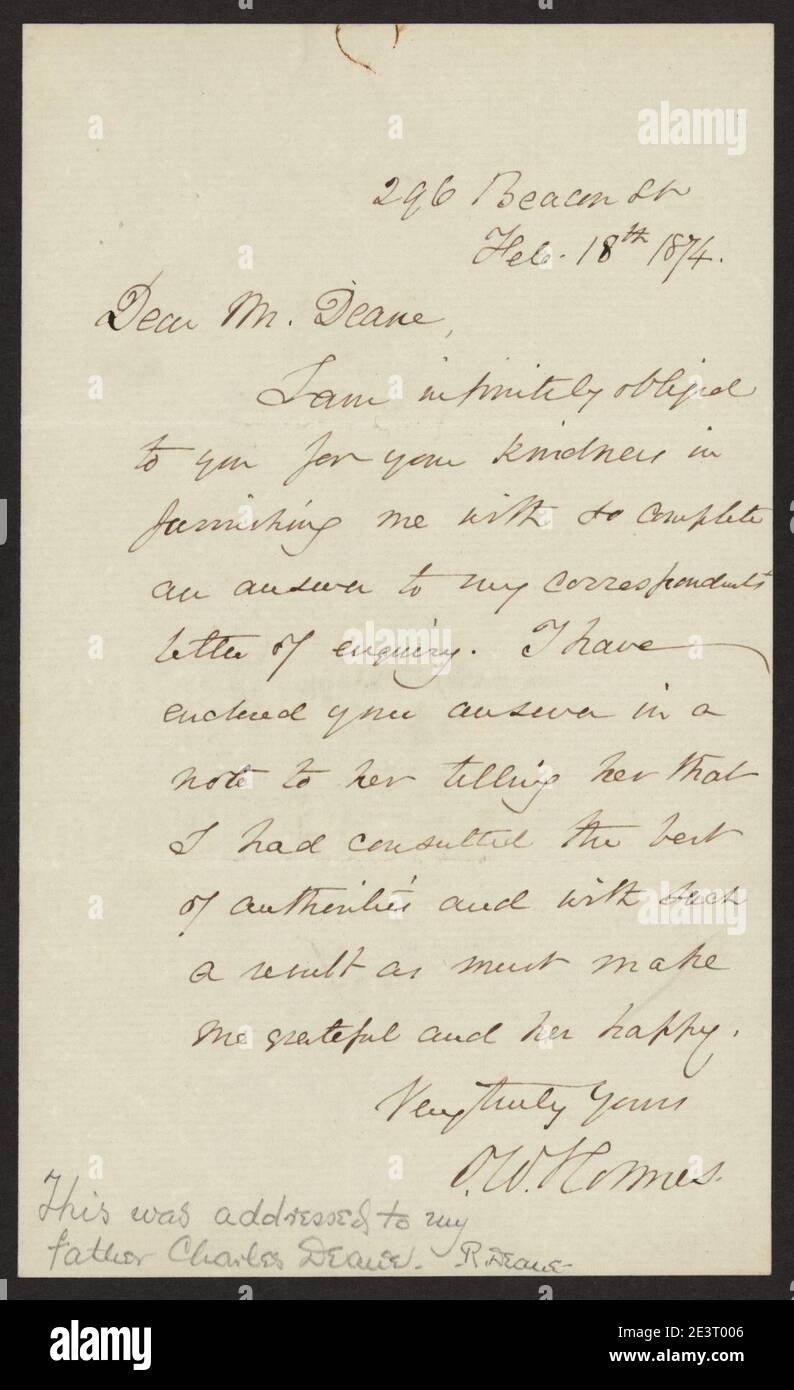 296 Beacon St
Feb. 18th 1874.
Dear Mr. Deane,
I am infinitely obliged
to you for your kindness in
furnishing me with so complete
an answer to my correspondent's
letter of enquiry. I have
enclosed your answer in a
note to her telling her that
I had consulted the best
of authorities and with such
a result as must make
me grateful and her happy.
Very truly Yours
O. W. Holmes.
This was addressed to my
father Charles Deane. R. Deane
alamy
alamy
alamy
a
alamy
Image ID: 2E3T006
www.alamy.com